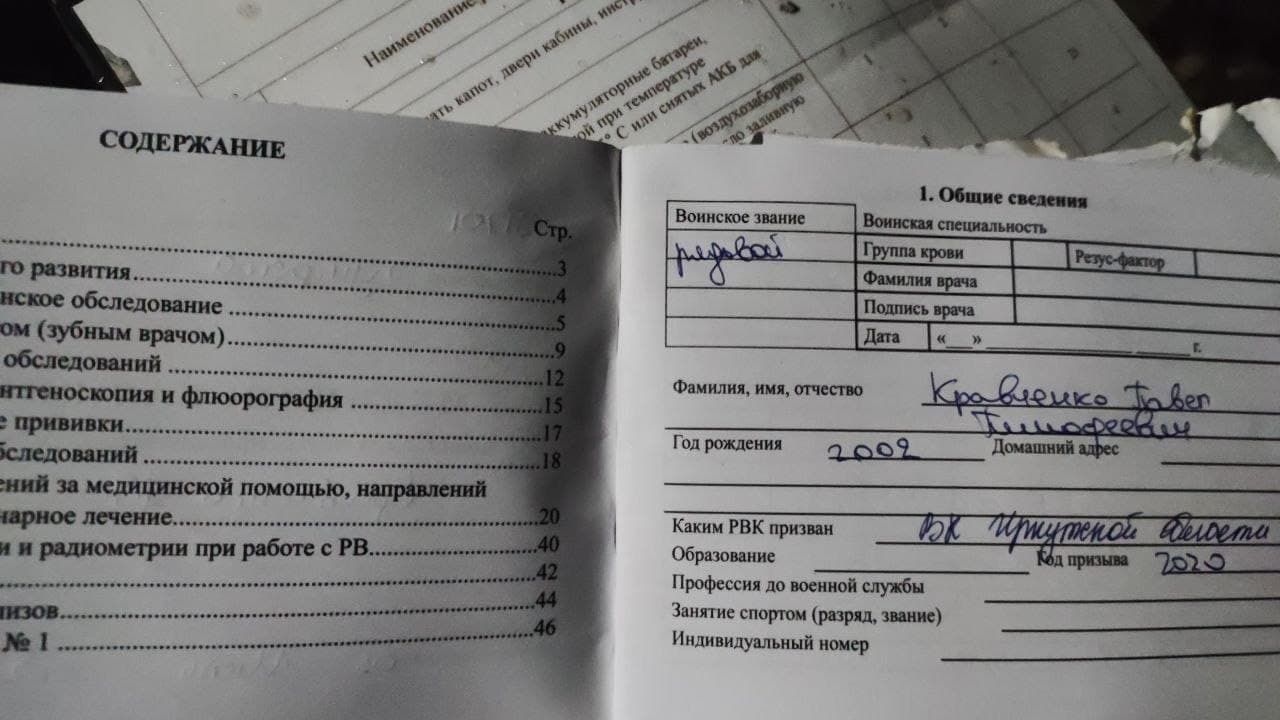 Наименование
ать капот, двери кабины, инстр
ккумуляторные батареи,
ной при температуре
° С или снятых АКБ для
(воздухозаборную
ло заливную
СОДЕРЖАНИЕ
Стр.
3
го развития 4
нское обследование 5
ом (зубным врачом) 9
обследований 12
нтгеноскопия и флюорография 15
е прививки 17
бследований 18
ений за медицинской помощью, направлений
нарное лечение 20
и и радиометрии при работе с РВ 40
42
лизов 44
№ 1 46
1. Общие сведения
Воинское звание Воинская специальность
рядовой Группа крови Резус-фактор
Фамилия врача
Подпись врача
Дата «___» ______ г.
Фамилия, имя, отчество Кравченко Павел
Тимофеевич
Год рождения 2002 Домашний адрес
Каким РВК призван ВК Иркутской области
Образование Год призыва 2020
Профессия до военной службы
Занятие спортом (разряд, звание)
Индивидуальный номер